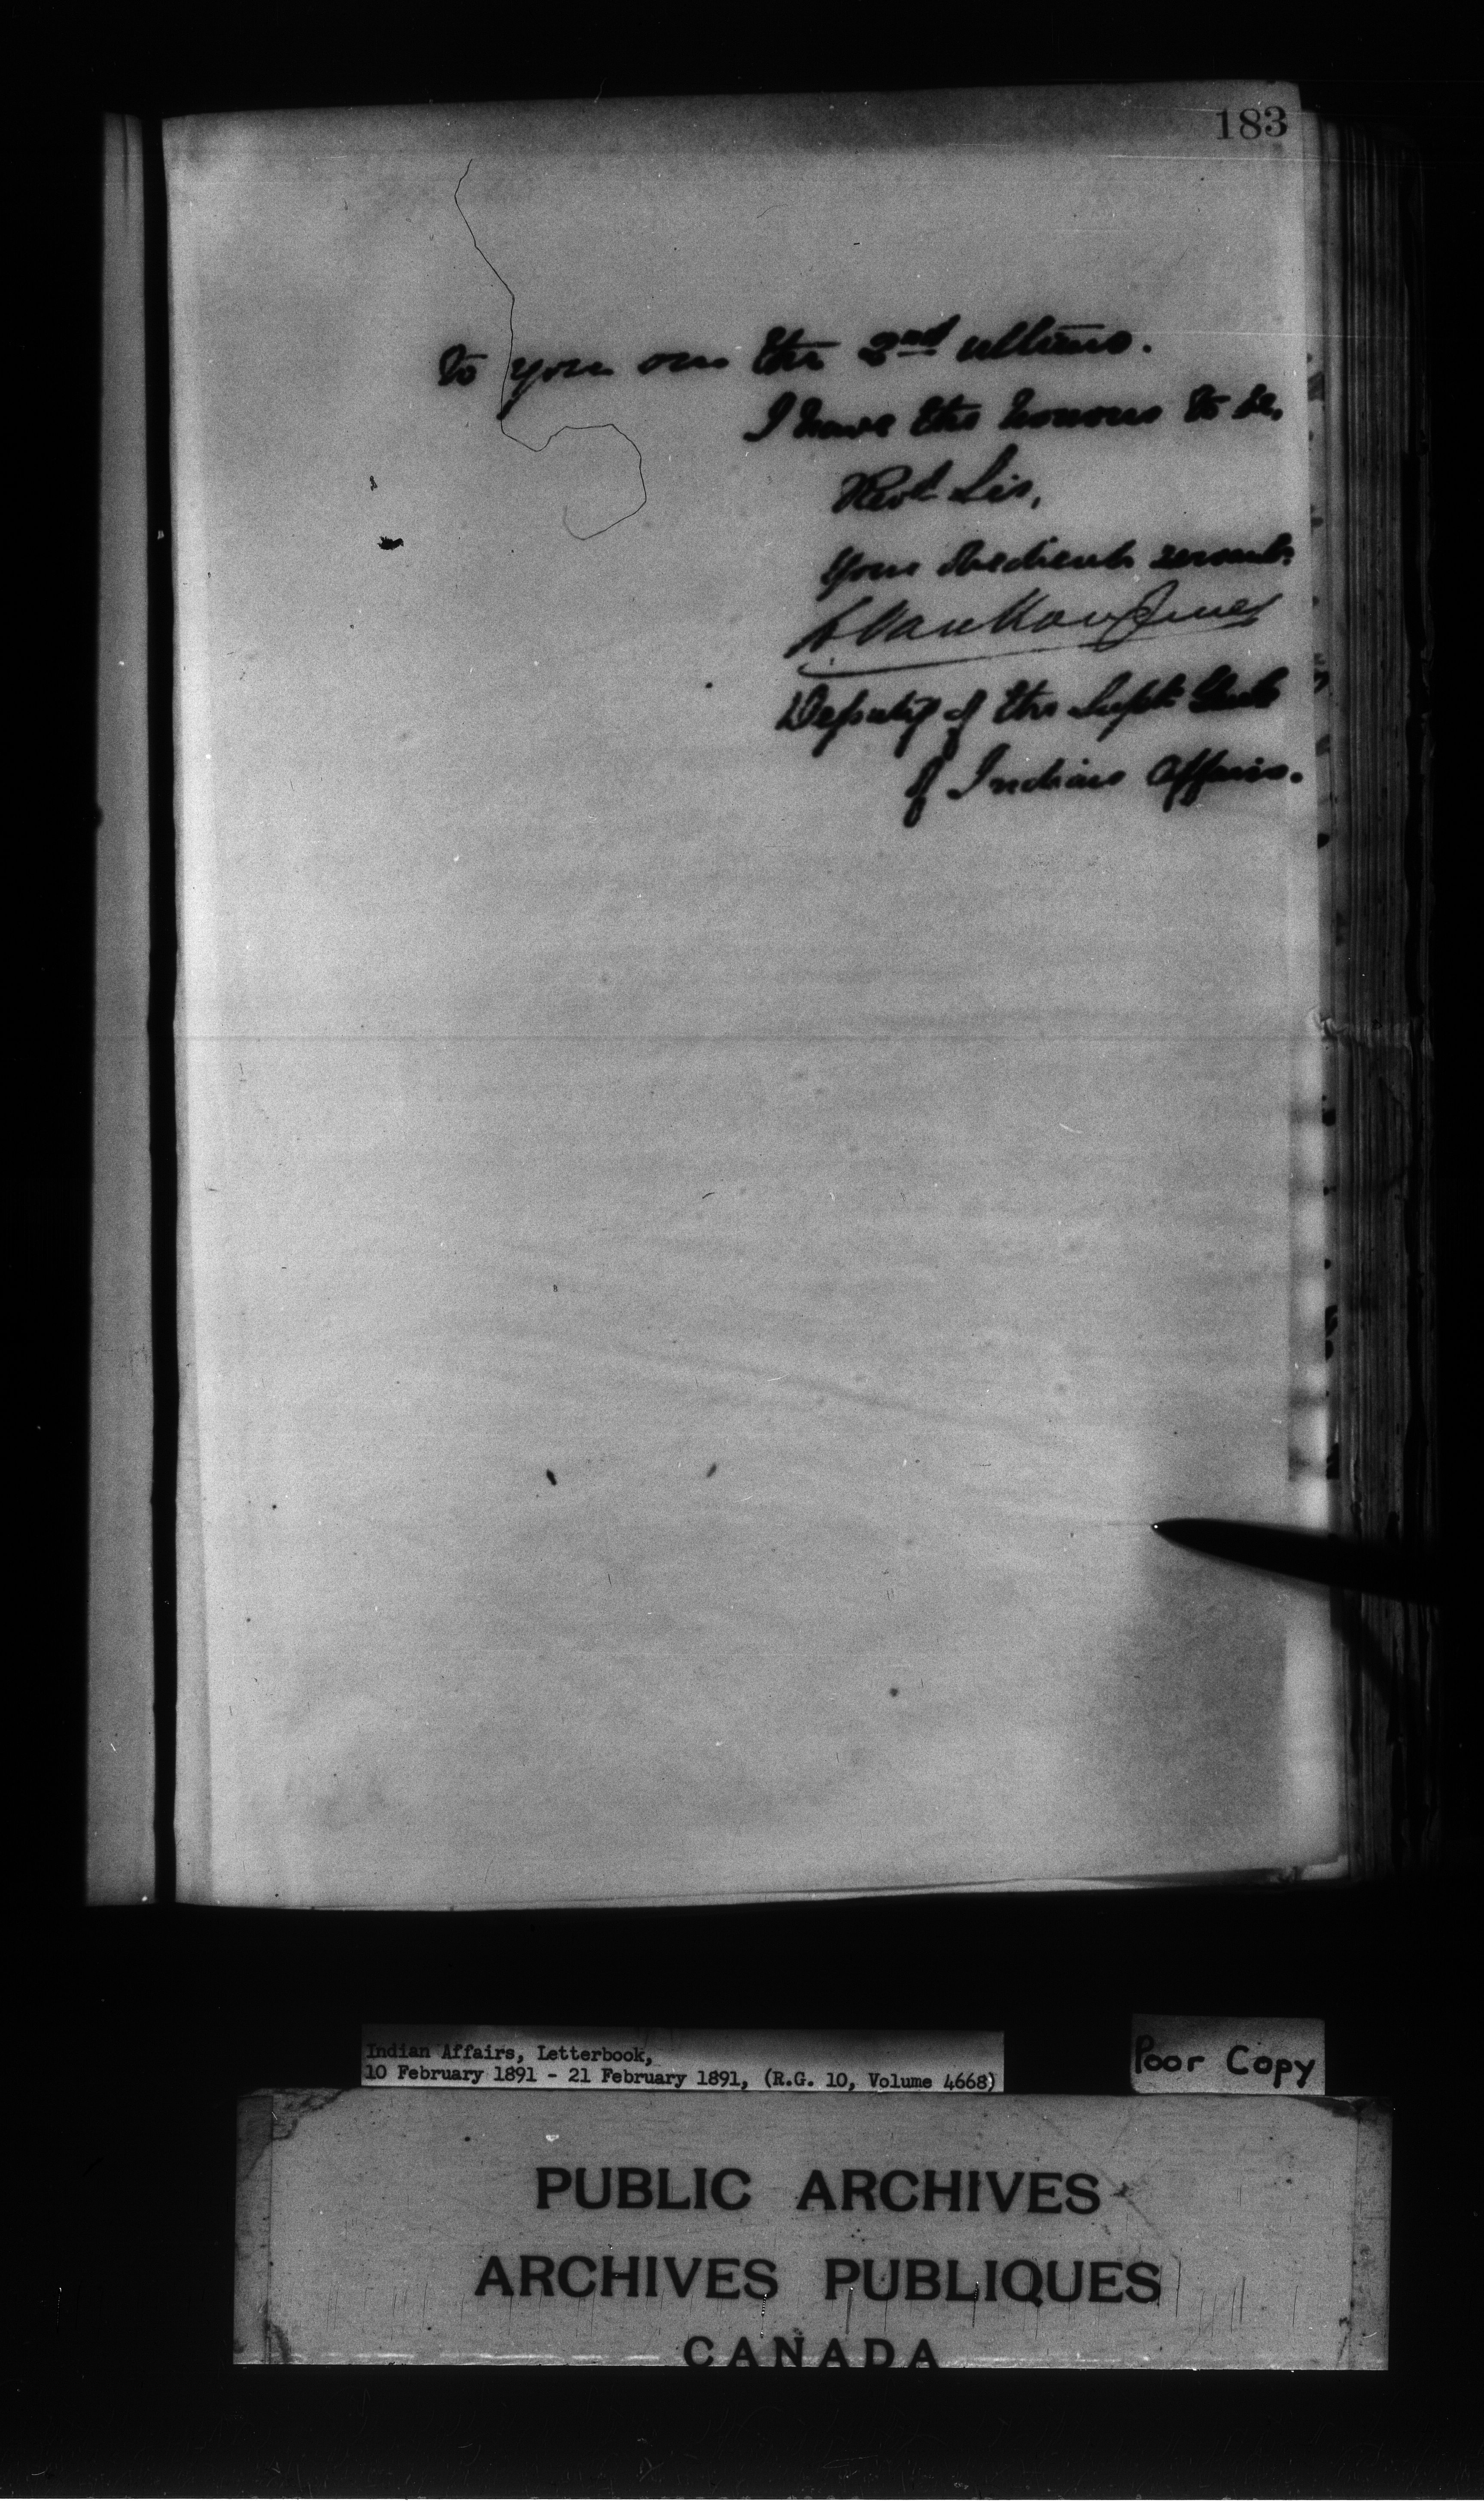 183
to you on the 2nd ultimo.
I have the honour to be,
Revd Sir,
Your obedient servant.
L. VanKoughnet
Deputy of the Supt Genl
of Indian Affairs.
Indian Affairs, Letterbook,
10 February 1891 - 21 February 1891, (R.G. 10, Volume 4668)
Poor Copy
PUBLIC ARCHIVES
ARCHIVES PUBLIQUES
CANADA